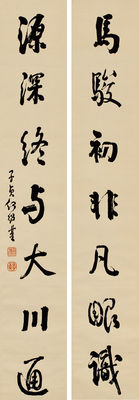 馬駿初非凡眼識
源深終与大川通
子貞何紹基